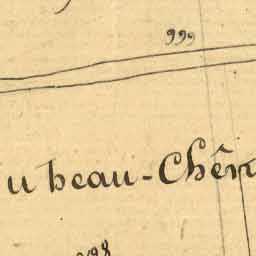 999
u beau-Chên